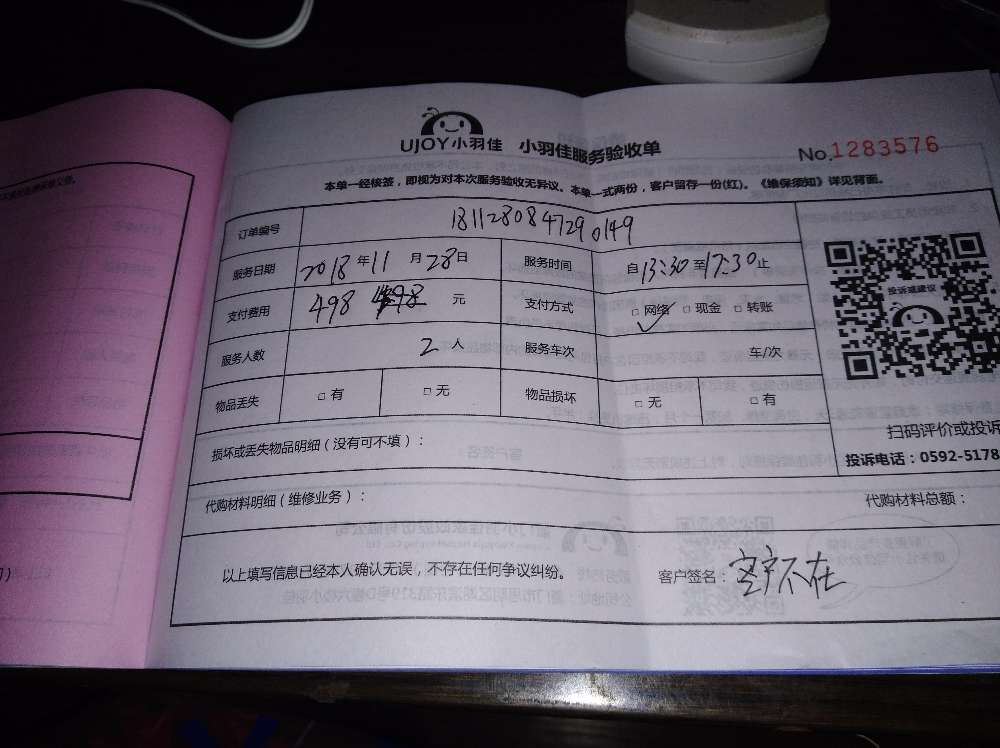 UJOY小羽佳 小羽佳服务验收单
No.1283576
本单一经核签，即视为对本次服务验收无异议。本单一式两份，客户留存一份(红)。《维保须知》详见背面。
订单编号 1811280847290149
服务日期 2018年11月28日 服务时间 自13:30至17:30止
投诉或建议
支付费用 498 498 元 支付方式 □网络 □现金 □转账
服务人数 2人 服务车次 车/次
物品丢失 □有 □无 物品损坏 □无 □有
扫码评价或投诉
损坏或丢失物品明细（没有可不填）：
投诉电话：0592-5178
代购材料明细（维修业务）： 代购材料总额：
以上填写信息已经本人确认无误，不存在任何争议纠纷。 客户签名：客户不在